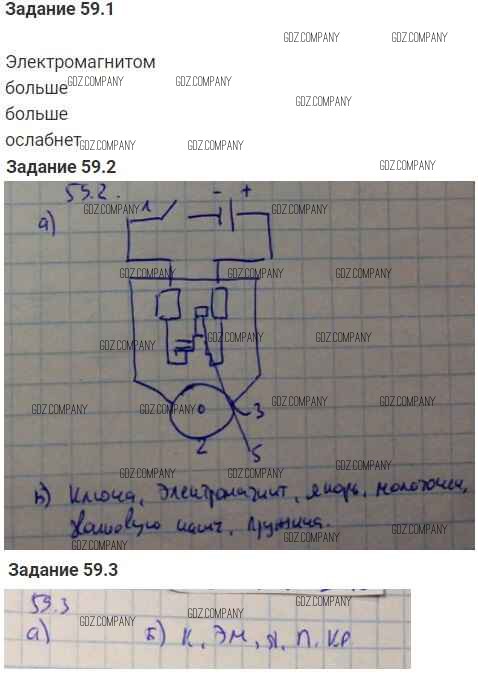 Задание 59.1
GDZ.COMPANY GDZ.COMPANY
Электромагнитом
GDZ.COMPANY GDZ.COMPANY
больше
GDZ.COMPANY
больше
ослабнет
GDZ.COMPANY GDZ.COMPANY
Задание 59.2
GDZ.COMPANY
59.2.
- +
GDZ.COMPANY 1 GDZ.COMPANY
а)
GDZ.COMPANY GDZ.COMPANY GDZ.COMPANY
GDZ.COMPANY GDZ.COMPANY GDZ.COMPANY
GDZ.COMPANY GDZ.COMPANY 3 GDZ.COMPANY GDZ.COMPANY
2 5
GDZ.COMPANY GDZ.COMPANY GDZ.COMPANY
Ключа, Электромагнит, якорь, молоточек,
чашт, Пружина.
GDZ.COMPANY GDZ.COMPANY
Задание 59.3
59.3
GDZ.COMPANY GDZ.COMPANY GDZ.COMPANY
а) Б) К, ЭМ, Я, П, КР